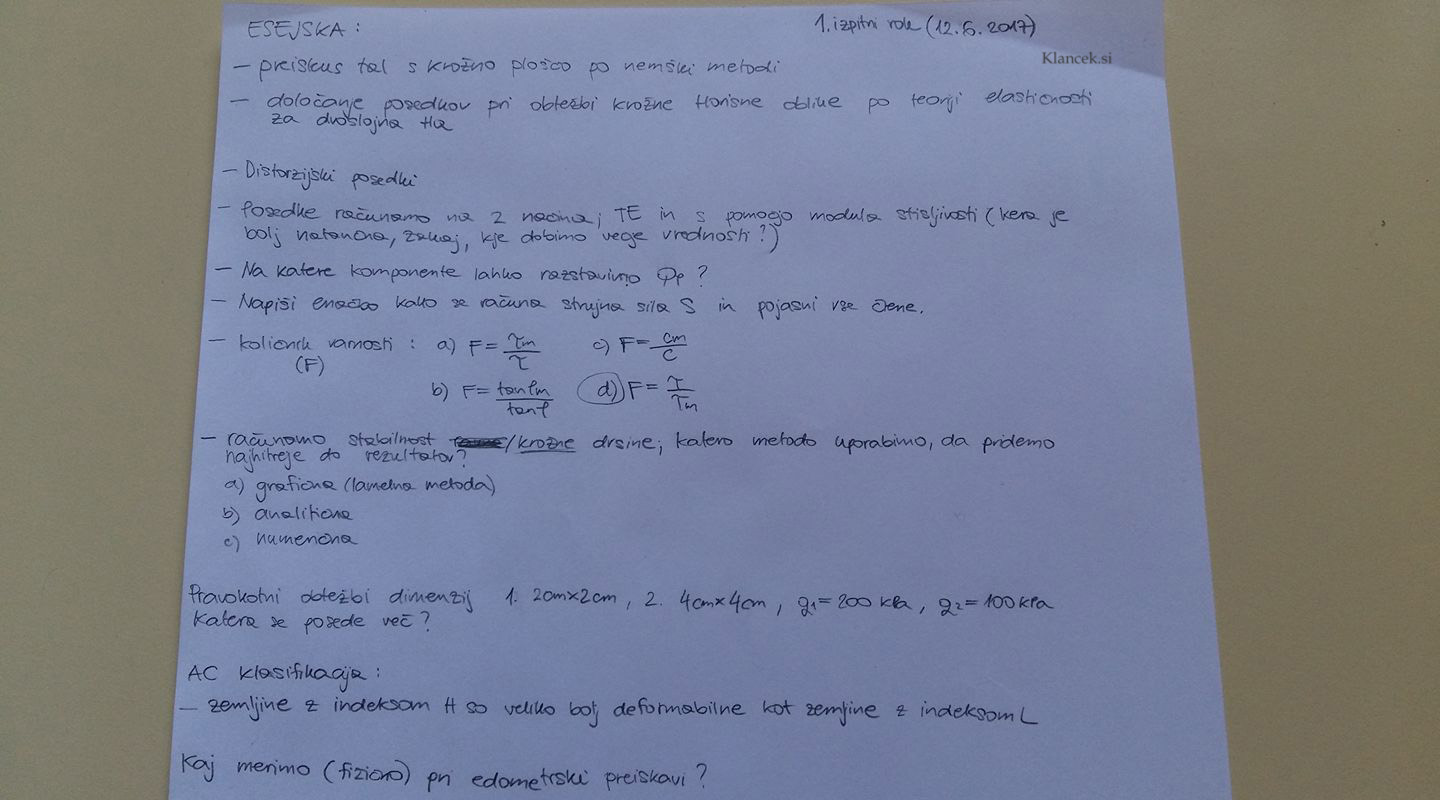 ESEJSKA :
1. izpitni rok (12.6.2017)
Klancek.si
– preiskus tal s krožno ploščo po nemški metodi
– določanje posedkov pri obtežbi krožne tlorisne oblike po teoriji elastičnosti
za dvoslojna tla
– Distorzijski posedki
– Posedke računamo na 2 načina; TE in s pomočjo modula stisljivosti (kera je
bolj natančna, zakaj, kje dobimo vege vrednosti?)
– Na katere komponente lahko razstavimo Qp ?
– Napiši enačbo kako se računa strujna sila S in pojasni vse člene.
– količnik varnosti : a) F = τm/τ c) F = cm/c
(F)
b) F = tanφm/tanφ d) F = τ/τm
– računamo stabilnost /krožne drsine; katero metodo uporabimo, da pridemo
najhitreje do rezultatov?
a) grafična (lamelna metoda)
b) analitična
c) numerična
Pravokotni obtežbi dimenzij 1. 2cm×2cm, 2. 4cm×4cm, g1 = 200 kPa, g2 = 100 kPa
katera se posede več?
AC klasifikacija :
– zemljine z indeksom H so veliko bolj deformabilne kot zemljine z indeksom L
Kaj merimo (fizično) pri edometrski preiskavi ?